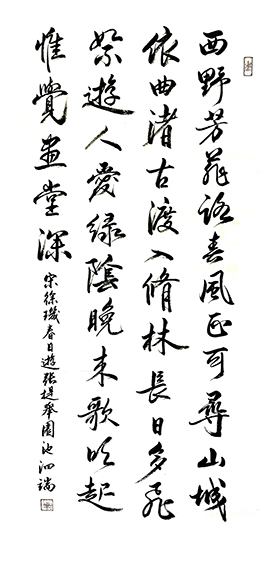 西野芳菲路春風正可尋山城
依曲渚古渡入脩林長日多飛
絮遊人愛綠陰晚來歌吹起
惟覺畫堂深
宋徐璣春日遊張提舉園池 泗端